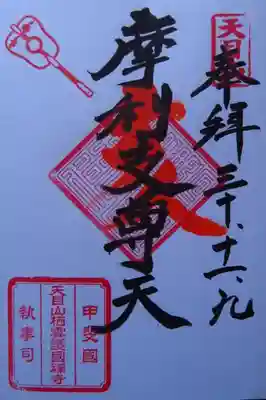 奉拜
三十、十一、九
摩利支尊天
甲斐國
天目山栖雲護國禪寺
執事司